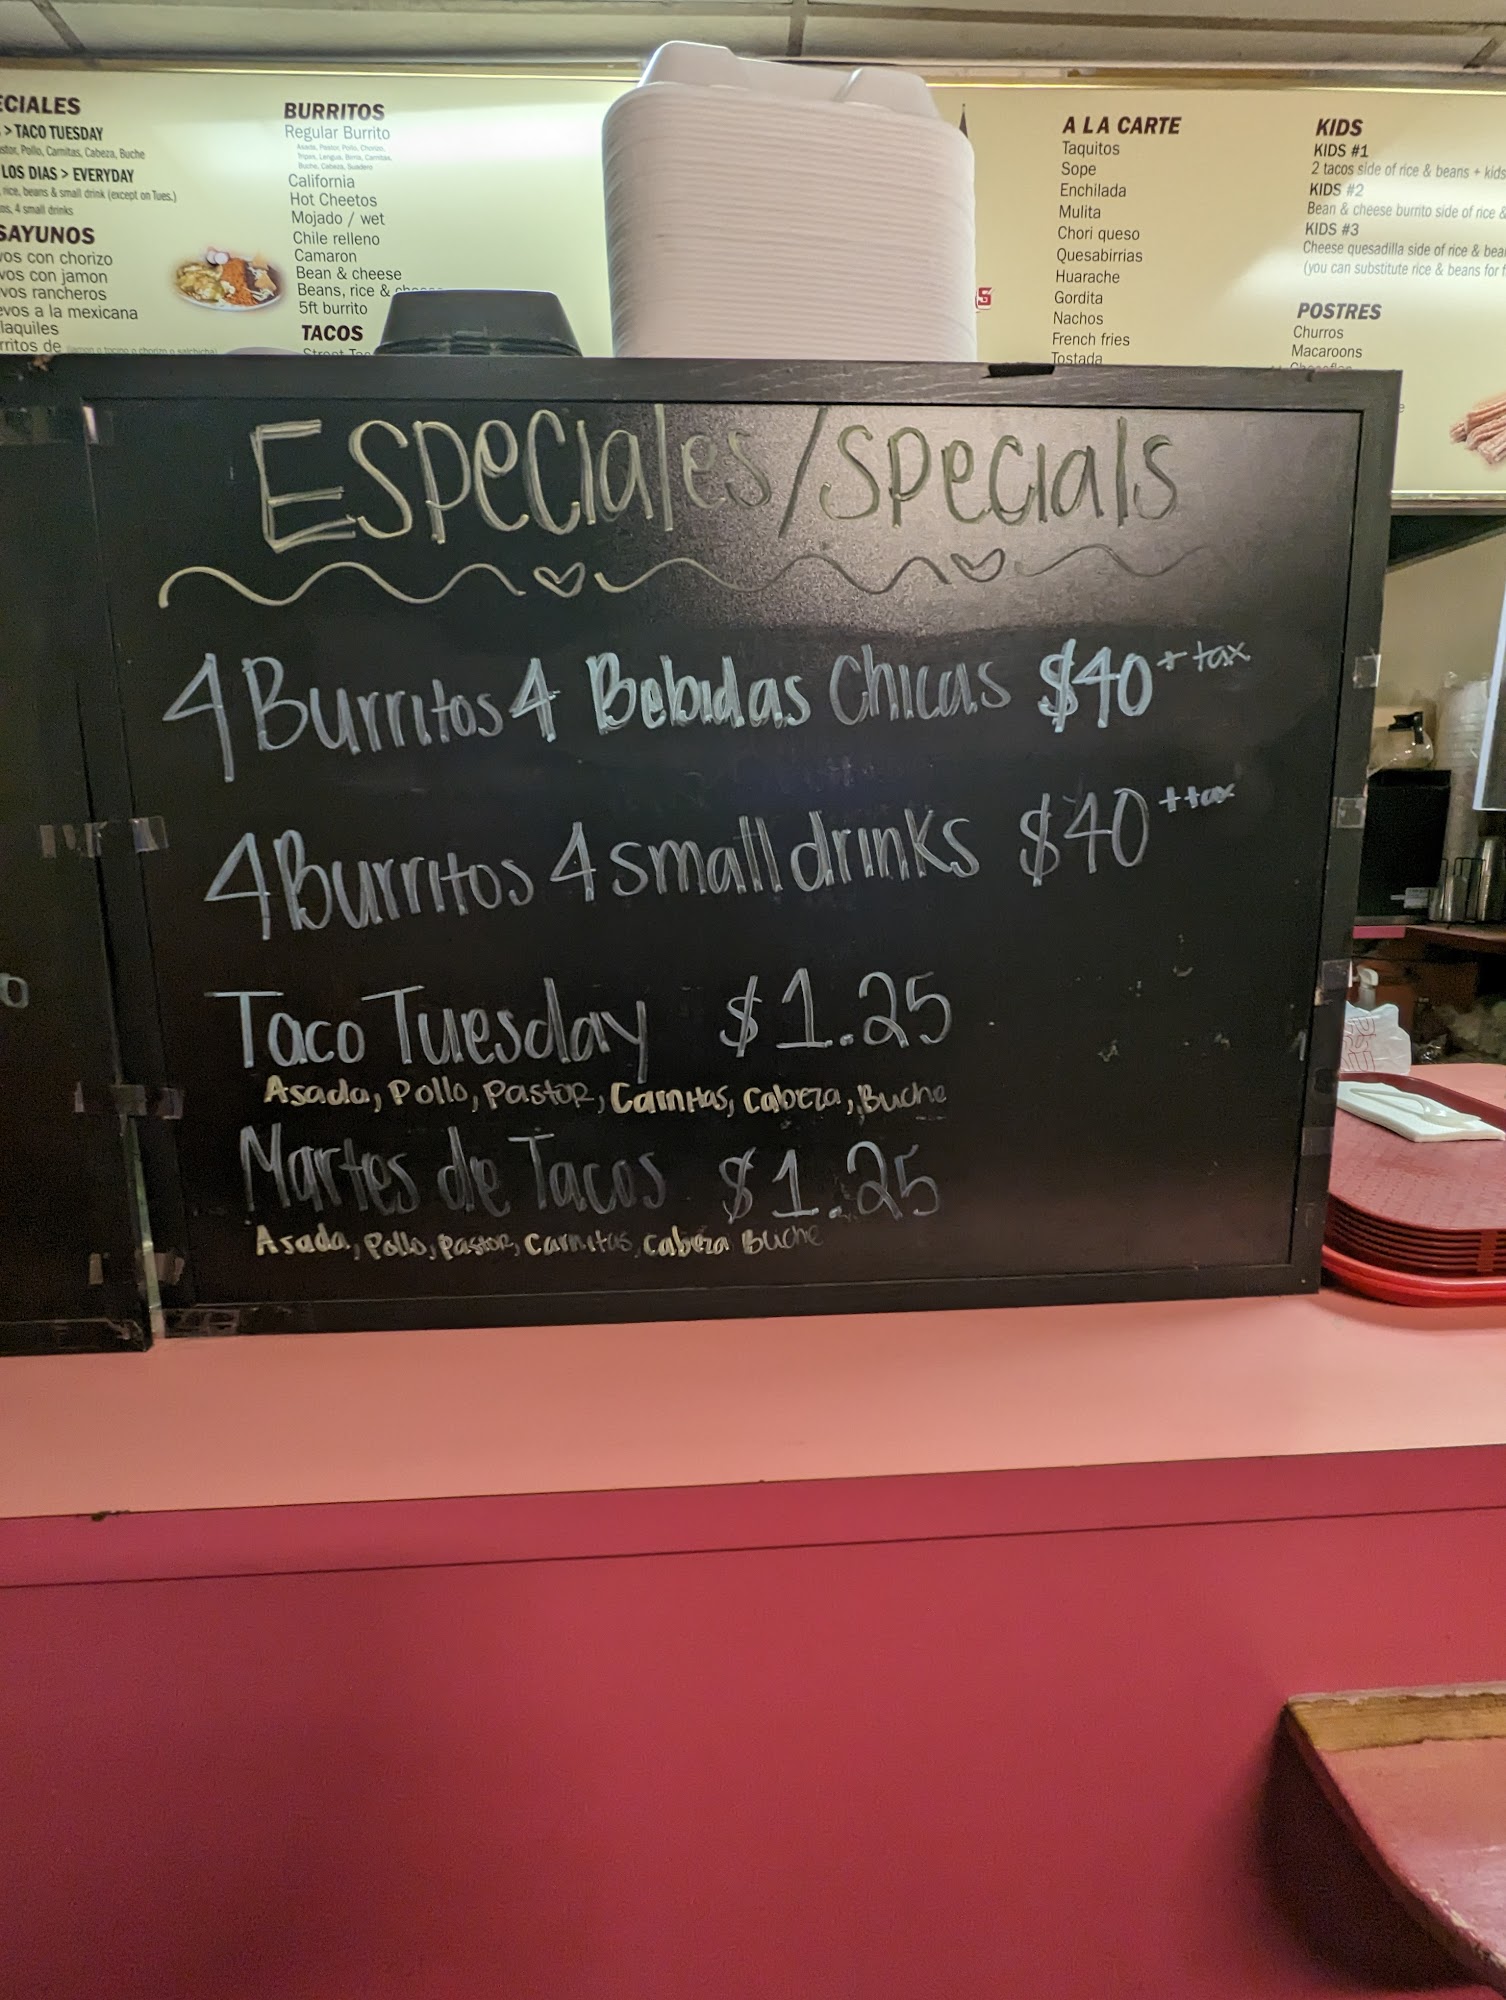 ECIALES
> TACO TUESDAY
stor, Pollo, Carnitas, Cabeza, Buche
LOS DIAS > EVERYDAY
, rice, beans & small drink (except on Tues.)
os, 4 small drinks
SAYUNOS
vos con chorizo
vos con jamon
vos rancheros
evos a la mexicana
laquiles
rritos de
BURRITOS
Regular Burrito
Asada, Pastor, Pollo, Chorizo,
Tripas, Lengua, Birria, Carnitas,
Buche, Cabeza, Suadero
California
Hot Cheetos
Mojado / wet
Chile relleno
Camaron
Bean & cheese
Beans, rice &
5ft burrito
TACOS
A LA CARTE
Taquitos
Sope
Enchilada
Mulita
Chori queso
Quesabirrias
Huarache
Gordita
Nachos
French fries
Tostada
KIDS
KIDS #1
2 tacos side of rice & beans + kids
KIDS #2
Bean & cheese burrito side of rice &
KIDS #3
Cheese quesadilla side of rice & bea
(you can substitute rice & beans for f
POSTRES
Churros
Macaroons
Especiales/specials
4 Burritos 4 Bebidas Chicas $40 + tax
4 Burritos 4 small drinks $40 + tax
Taco Tuesday $1.25
Asada, Pollo, Pastor, Carnitas, Cabeza, Buche
Martes de Tacos $1.25
Asada, Pollo, Pastor, Carnitas, Cabeza Buche